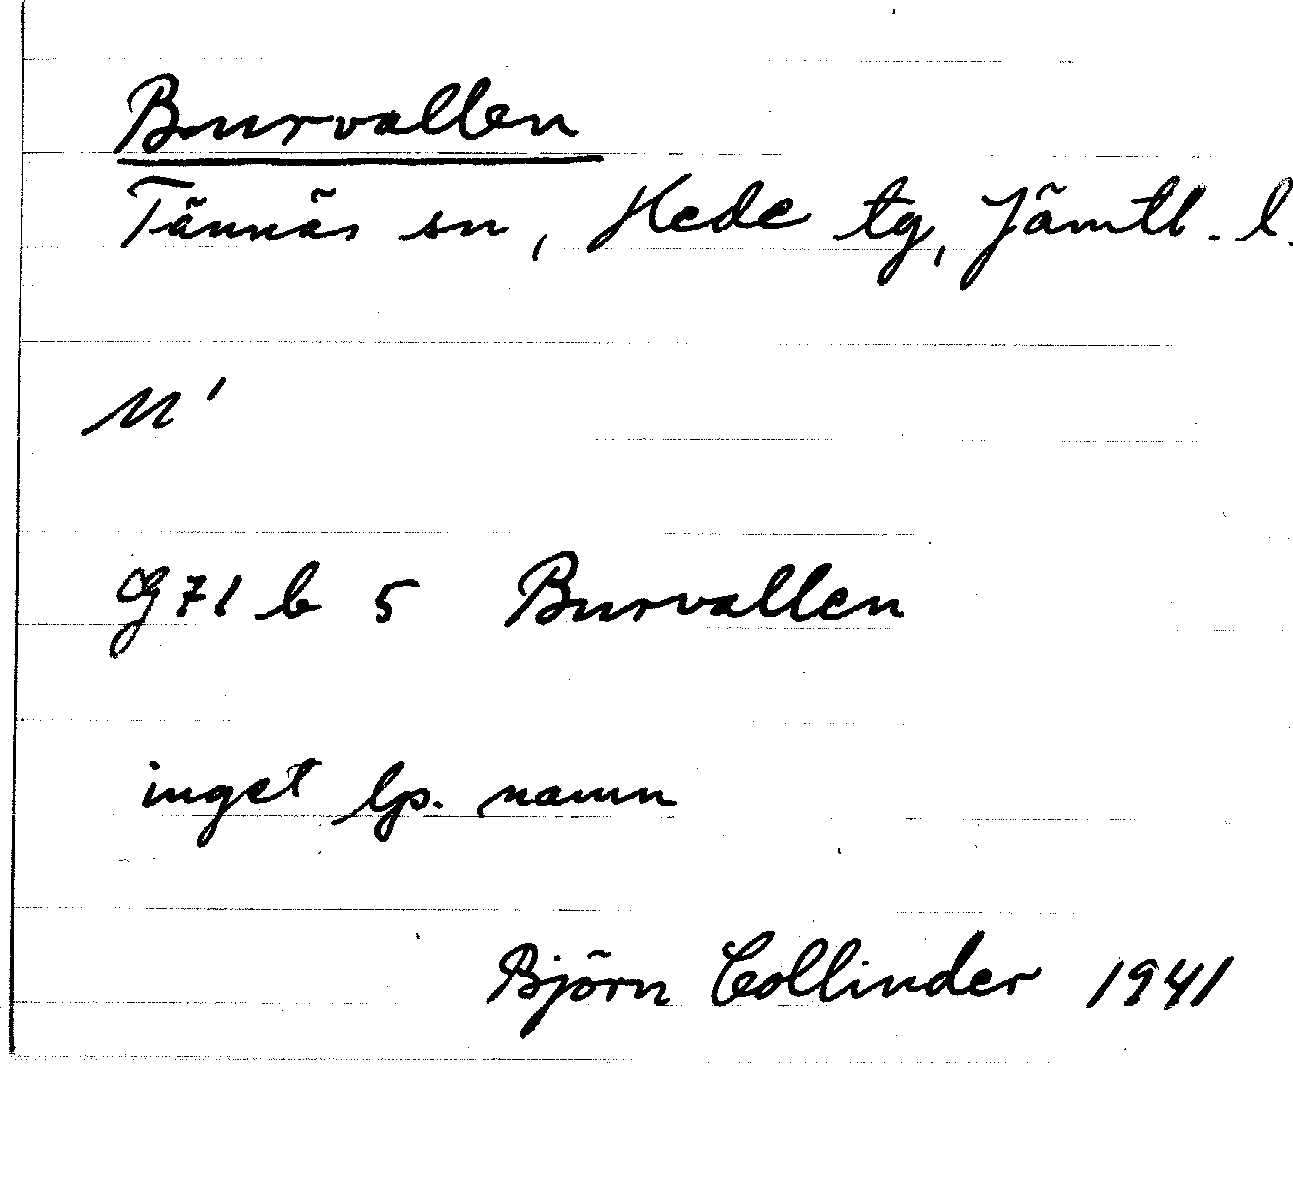 Burvallen
Tännäs sn, Hede tg, Jämtl. l.
G71 b 5 Burvallen
inget lp. namn
Björn Collinder 1941